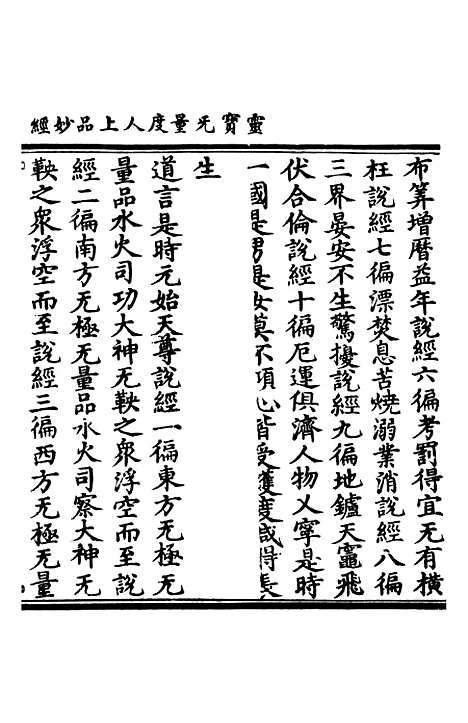 靈寶无量度人上品妙經
布筭增曆益年說經六徧考罰得宜无有橫
枉說經七徧漂焚息苦燒溺業消說經八徧
三界晏安不生驚擾說經九徧地鑪天竈飛
伏合倫說經十徧厄運俱濟人物乂寧是時
一國是男是女莫不項心皆受護度咸得長
生
道言是時元始天尊說經一徧東方无極无
量品水火司功大神无鞅之衆浮空而至說
經二徧南方无極无量品水火司察大神无
鞅之衆浮空而至說經三徧西方无極无量